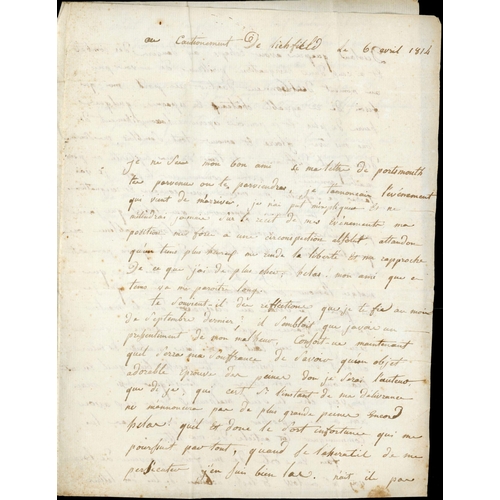 au Cantonnement De Lichfield le 6 avril 1814
je ne sais mon bon ami si ma lettre de portsmouth
t'es parvenue ou te parviendras, je t'annoncais l'événement
qui vient de m'arriver, je n'ai put m'expliquer et ne
m'étendrai jamais sur le récit de mes événements ma
position me force a une circonspection
qu'un tems plus heureux me rende la liberté et me rapproche
De ce que j'ai de plus cher, helas. mon ami que ce
tems va me paroître long.
te souvient-il des reflections que je te fis au mois
de Septembre dernier, il sembloit que j'avois un
présentiment de mon malheur,
quel sera ma souffrance de savoir qu'un objet
adorable éprouve des peines don je serai l'auteur
que dis-je, qui cert si l'instant de ma délivrance
ne m'annoncera pas de plus grande peines encore
helas! quel est donc le sort infortuné qui me
poursuit par tout, quand se lassera-til de me
persécuter j'en suis bien las. n'ait il pas